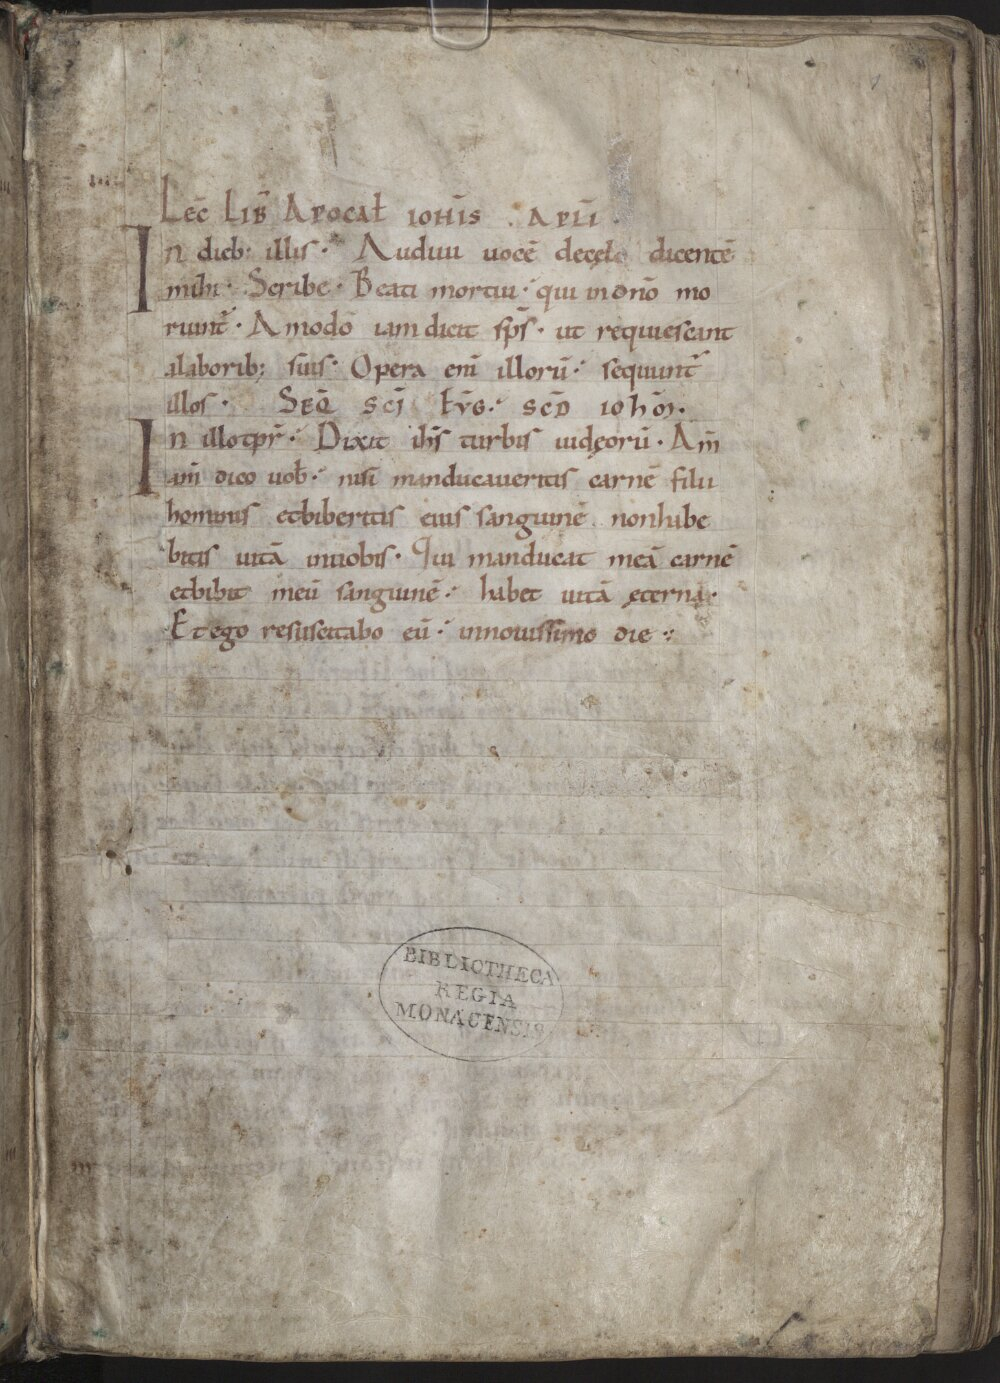 Lec̄ Lib̄ Apocał ioħis Apłi
In dieb: illis · Audiui uocē decęlo dicentē
mihi · Scribe · Beati mortui · qui indnō mo
riunt᷑ · Amodō iam dicit sp̄s · ut requiescant
alaborib; suis · Opera eni̅ illorū · sequunt᷑
illos · Seq̄ sc̄i Evḡ · sc̄d ioħm̄ ·
In illotp̄r · Dixit ih̄s turbis iudęorū · Am̄
am̄ dico uob̄ · nisi manducaueritis carnē filii
hominis etbiberitis eius sanguinē nonhabe
bitis uitā inuobis · Qui manducat meā carnē
etbibit meū sanguinē · habet uitā ęternā ·
Et ego resuscitabo eū · innouissimo die
BIBLIOTHECA
REGIA
MONACENSIS